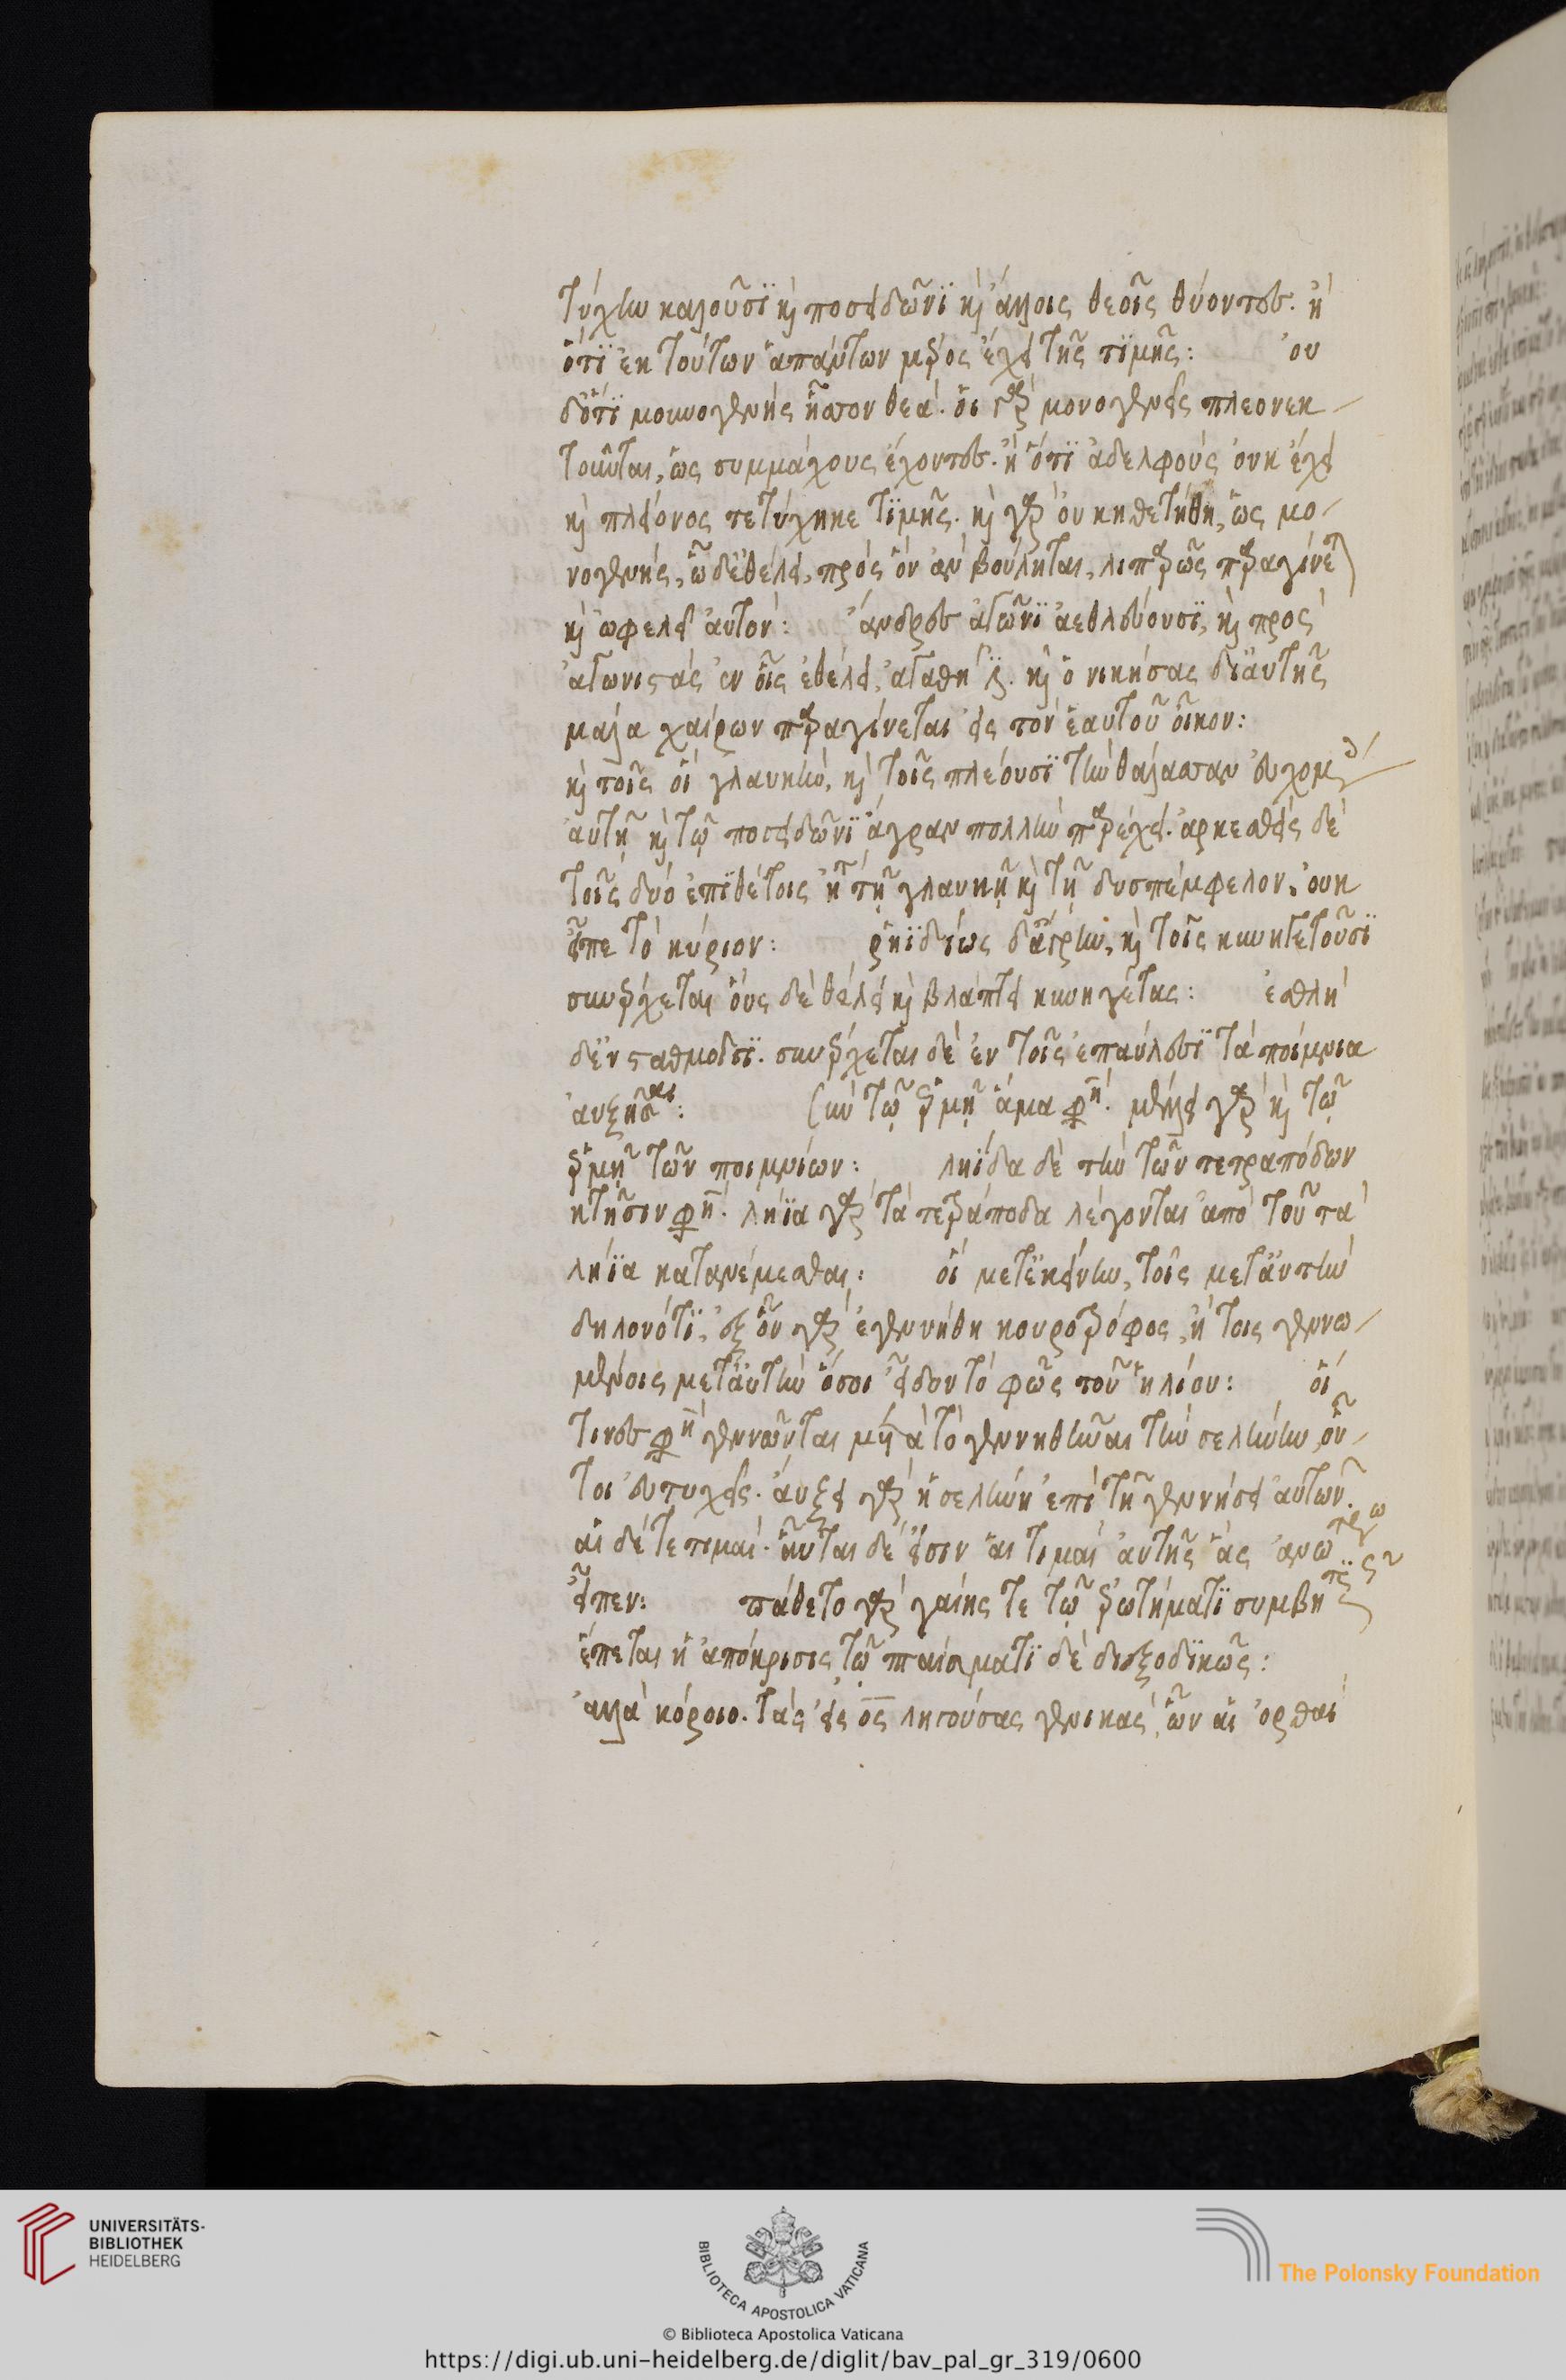 τύχην καλοῦσϊ καὶ ποσειδῶνϊ καὶ ἄλλοις θεοῖς θύοντες. ἢ
ὅτϊ ἐκ τούτων ἁπάντων μέρος ἔχει τῆς τϊμῆς: οὐ
δ' ὅτϊ μουνογενὴς ἧττον θεά. οἱ γὰρ μονογενεῖς πλεονεκ
τοῦνται, ὡς συμμάχους ἔχοντες. ἢ ὅτϊ ἀδελφοὺς οὐκ ἔχει
καὶ πλείονος τετύχηκε τϊμῆς. καὶ γὰρ οὐκ ἠθετήθη, ὡς μο
νογενής, ᾧ δ' ἐθέλει, πρὸς ὃν ἂν βούληται, λιπαρῶς παραγίνεται
καὶ ὠφελεῖ αὐτόν: ἄνδρες ἀγῶνϊ ἀεθλεύουσϊ, καὶ πρὸς
ἀγωνιστὰς ἐν οἷς ἐθέλει, ἀγαθή ἐστι. καὶ ὁ νικήσας δϊ' αὐτῆς
μάλα χαίρων παραγίνεται εἰς τὸν ἑαυτοῦ οἶκον:
καὶ τοῖς οἳ γλαυκὴν, καὶ τοῖς πλέουσϊ τὴν θάλασσαν εὐχομένοις
αὐτῇ καὶ τῷ ποσειδῶνϊ ἄγραν πολλὴν παρέχει. ἀρκεσθεὶς δὲ
τοῖς δυὸ ἐπϊθέτοις ἤτοι τῇ γλαυκῇ καὶ τῇ δυσπέμφελον, οὐκ
εἶπε τὸ κύριον: ῥηϊδίως δ' ἄγρην, καὶ τοῖς κυνηγετοῦσϊ
συνέρχεται οὓς δὲ θέλει καὶ βλάπτει κυνηγέτας: ἐσθλὴ
δ' ἐν σταθμοῖσϊ. συνέρχεται δὲ ἐν τοῖς ἐπαύλεσϊ τὰ ποίμνια
αὐξῆσαι: σὺν τῷ ἑρμῇ ἅμα φησί. μέλει γὰρ καὶ τῷ
ἑρμῇ τῶν ποιμνίων: ληίδα δὲ τὴν τῶν τετραπόδων
κτῆσιν φησί. λήϊα γὰρ τὰ τετράποδα λέγονται ἀπὸ τοῦ τὰ
λήϊα κατανέμεσθαι: οἳ μετ' ἐκείνην, τοῖς μετ' αὐτὴν
δηλονότϊ, ἐξ ὧν γὰρ ἐγεννήθη κουροτρόφος, ἢ τοῖς γεννω
μένοις μετ' αὐτὴν ὅσοι εἶδον τὸ φῶς τοῦ ἡλίου: οἵ
τινες φησί γεννῶνται μετὰ τὸ γεννηθῆναι τὴν σελήνην, οὗ
τοι εὐτυχεῖς. αὔξει γὰρ ἡ σελήνη ἐπὶ τῇ γεννήσει αὐτῶν.
αἱ δέ τε τιμαί. αὗται δέ εἰσιν αἱ τιμαὶ αὐτῆς ἃς ἀνωτέρω
εἶπεν: πείθετο γὰρ γαίης τε τῷ ἐρωτήματϊ συμβη
ἕπεται ἡ ἀπόκρισις, τῷ πταίσματϊ δὲ διεξοδϊκῶς:
ἀλλὰ κόροιο. τὰς εἰς ος ληγούσας γενικὰς, ὧν αἱ ὀρθαὶ
UNIVERSITÄTS-
BIBLIOTHEK
HEIDELBERG
BIBLIOTECA APOSTOLICA VATICANA
The Polonsky Foundation
© Biblioteca Apostolica Vaticana
https://digi.ub.uni-heidelberg.de/diglit/bav_pal_gr_319/0600